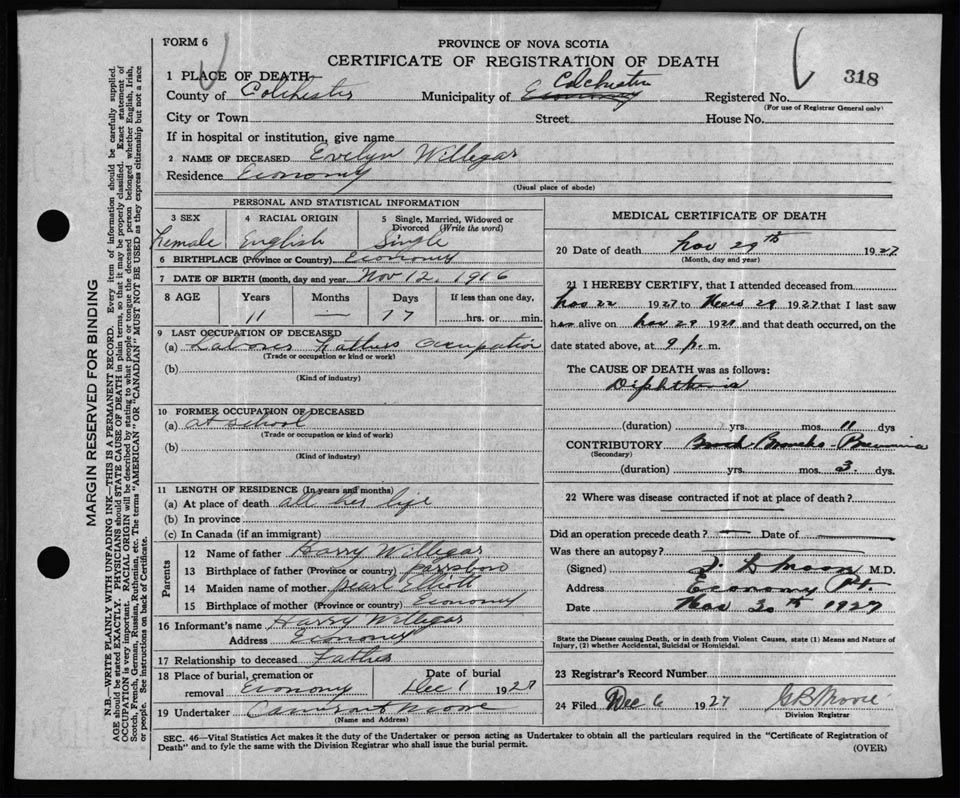 FORM 6
PROVINCE OF NOVA SCOTIA
CERTIFICATE OF REGISTRATION OF DEATH
318
1 PLACE OF DEATH
County of Colchester Municipality of Economy Colchester Registered No.
(For use of Registrar General only)
City or Town Street House No.
If in hospital or institution, give name
2 NAME OF DECEASED Evelyn Willigar
Residence Economy
(Usual place of abode)
PERSONAL AND STATISTICAL INFORMATION
3 SEX 4 RACIAL ORIGIN 5 Single, Married, Widowed or Divorced (Write the word)
Female English Single
6 BIRTHPLACE (Province or Country) Economy
7 DATE OF BIRTH (month, day and year) Nov 12, 1916
8 AGE Years Months Days If less than one day,
11 — 17 hrs. or min.
9 LAST OCCUPATION OF DECEASED
(a) Laborer Fathers Occupation
(Trade or occupation or kind or work)
(b)
(Kind of industry)
10 FORMER OCCUPATION OF DECEASED
(a) at school
(Trade or occupation or kind of work)
(b)
(Kind of industry)
11 LENGTH OF RESIDENCE (In years and months)
(a) At place of death all her life
(b) In province
(c) In Canada (if an immigrant)
Parents
12 Name of father Harry Willigar
13 Birthplace of father (Province or country) Parrsboro
14 Maiden name of mother Pearl Elliott
15 Birthplace of mother (Province or country) Economy
16 Informant's name Harry Willigar
Address Economy
17 Relationship to deceased Father
18 Place of burial, cremation or removal Economy Date of burial Dec 1 1927
19 Undertaker Moore
(Name and Address)
MEDICAL CERTIFICATE OF DEATH
20 Date of death Nov 29th 1927
(Month, day and year)
21 I HEREBY CERTIFY, that I attended deceased from
Nov 22 1927 to Nov 29 1927 that I last saw
her alive on Nov 29 1927 and that death occurred, on the
date stated above, at 9 p. m.
The CAUSE OF DEATH was as follows:
Diphtheria
(duration) yrs. mos. 11 dys
CONTRIBUTORY Broncho-Pneumonia
(Secondary)
(duration) yrs. mos. 3 dys.
22 Where was disease contracted if not at place of death?
Did an operation precede death? — Date of —
Was there an autopsy?
(Signed) Moore M.D.
Address Economy Pt.
Date Nov 30th 1927
State the Disease causing Death, or in death from Violent Causes, state (1) Means and Nature of
Injury, (2) whether Accidental, Suicidal or Homicidal.
23 Registrar's Record Number
24 Filed Dec 6 1927 G B Moore
Division Registrar
SEC. 46—Vital Statistics Act makes it the duty of the Undertaker or person acting as Undertaker to obtain all the particulars required in the "Certificate of Registration of
Death" and to fyle the same with the Division Registrar who shall issue the burial permit.
(OVER)
MARGIN RESERVED FOR BINDING
N.B.—WRITE PLAINLY WITH UNFADING INK—THIS IS A PERMANENT RECORD. Every item of information should be carefully supplied.
AGE should be stated EXACTLY. PHYSICIANS should STATE CAUSE OF DEATH in plain terms, so that it may be properly classified. Exact statement of
OCCUPATION is very important. RACIAL ORIGIN will be described by stating to what people or tongue the deceased person belonged whether English, Irish,
Scotch, French, German, Russian, Ruthenian, etc. The terms "AMERICAN" OR "CANADIAN" MUST NOT BE USED as they express citizenship but not a race
or people. See instructions on back of Certificate.